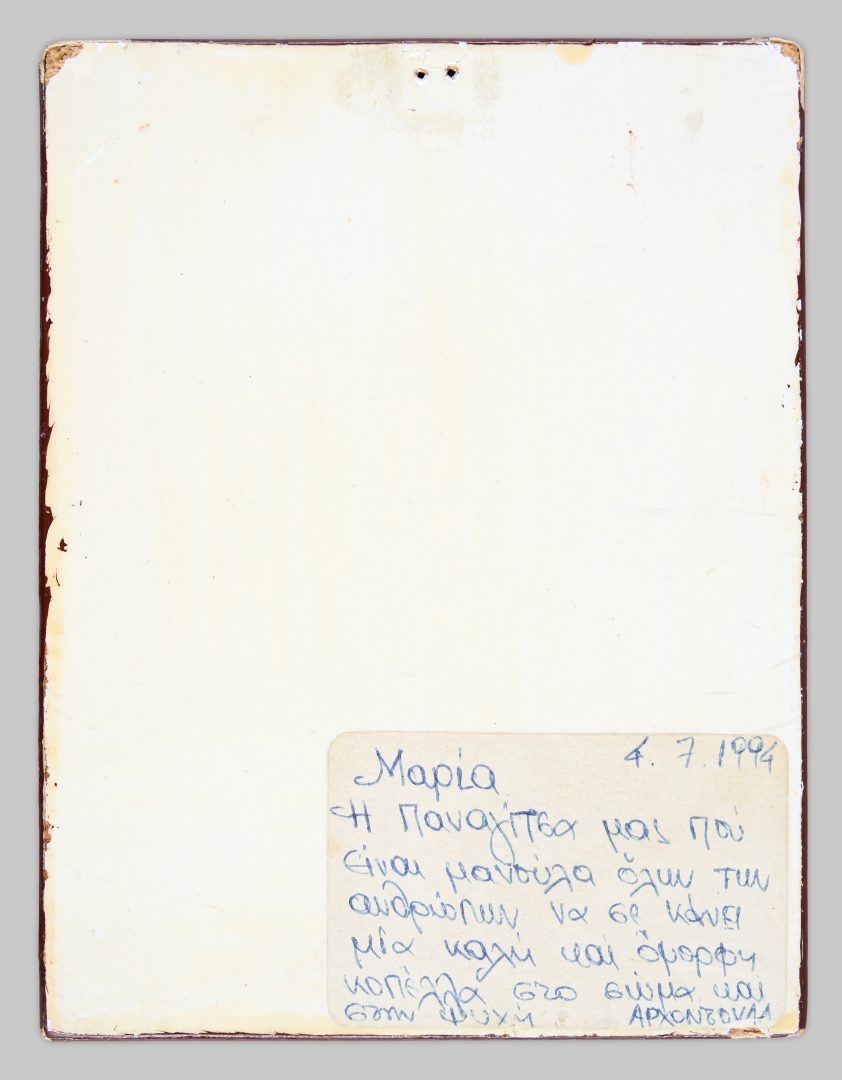 4.7.1994
Μαρία
Η Παναγίτσα μας πού
είναι μανούλα ὅλων των
ανθρώπων να σε κάνει
μία καλή και ὄμορφη
κοπέλλα στο σώμα και
στην ψυχή ΑΡΧΟΝΤΟΥΛΑ